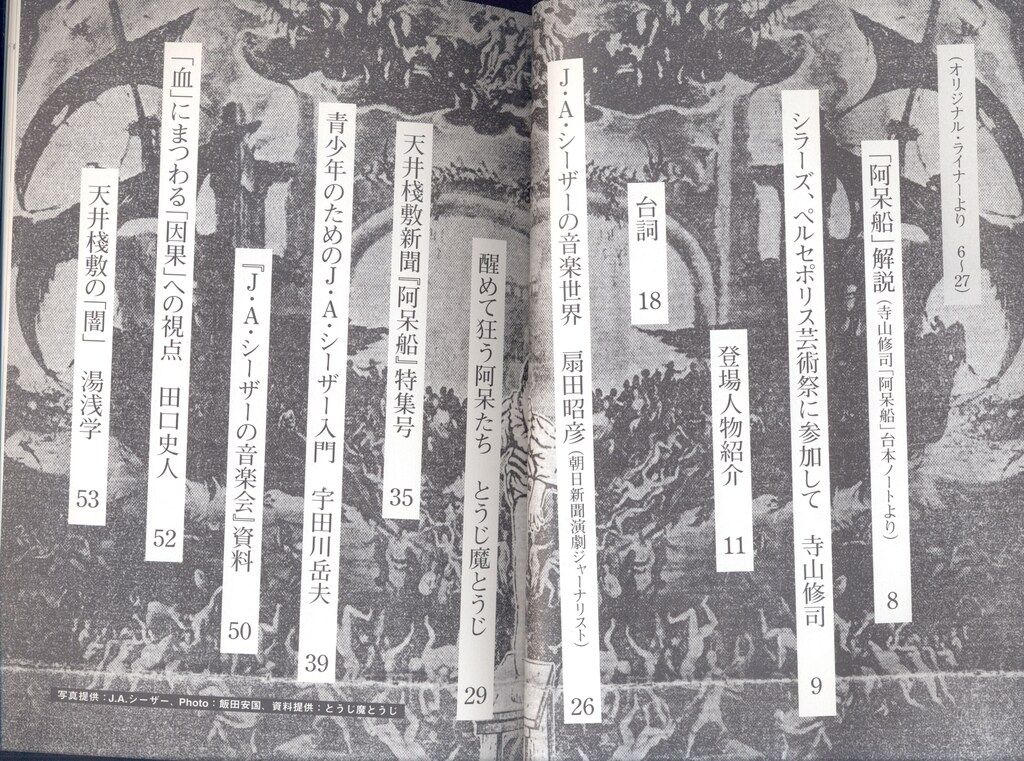 （オリジナル・ライナーより　6〜27）
「阿呆船」解説（寺山修司「阿呆船」台本ノートより）　8
シラーズ、ペルセポリス芸術祭に参加して　寺山修司　9
登場人物紹介　11
台詞　18
J・A・シーザーの音楽世界　扇田昭彦（朝日新聞演劇ジャーナリスト）　26
醒めて狂う阿呆たち　とうじ魔とうじ　29
天井棧敷新聞『阿呆船』特集号　35
青少年のためのJ・A・シーザー入門　宇田川岳夫　39
『J・A・シーザーの音楽会』資料　50
「血」にまつわる「因果」への視点　田口史人　52
天井棧敷の「闇」　湯浅学　53
写真提供：J.A.シーザー、Photo：飯田安国、資料提供：とうじ魔とうじ